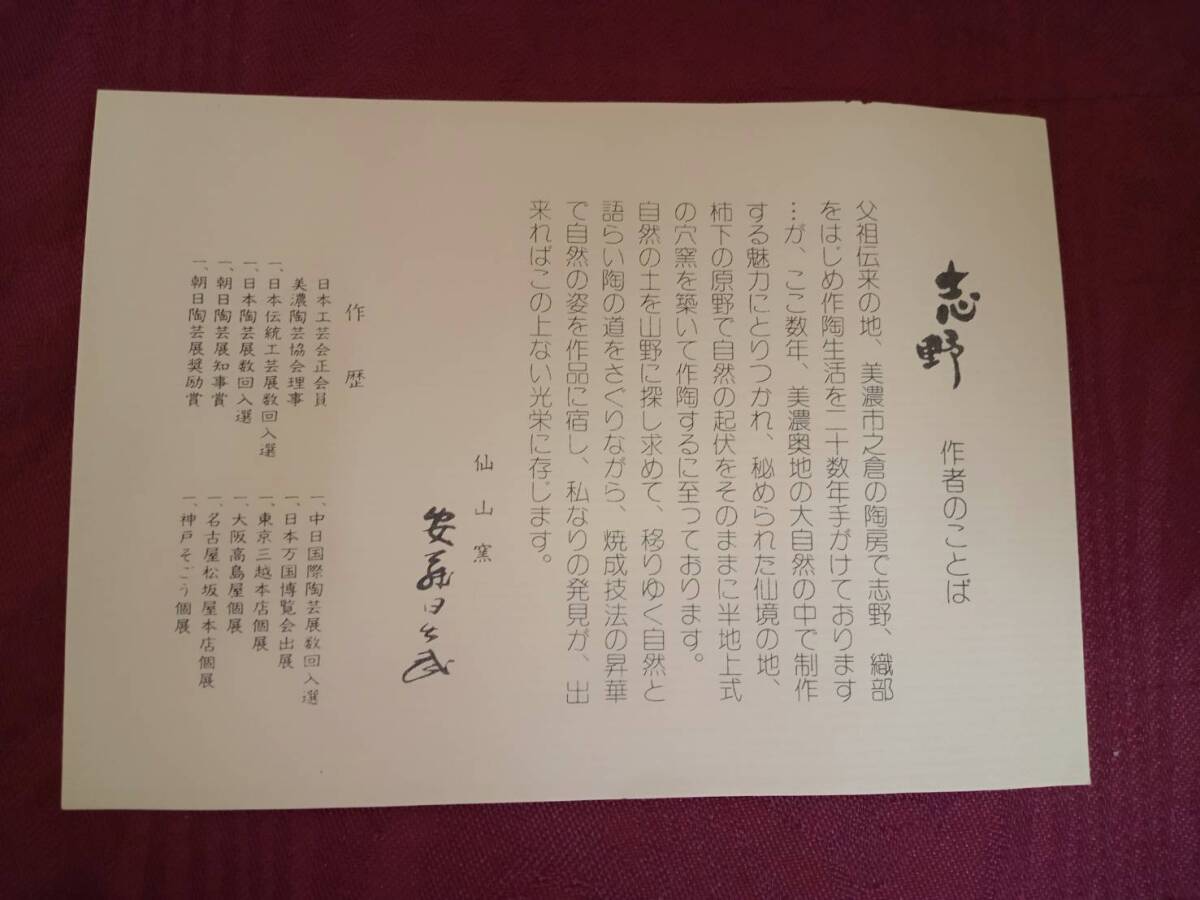 志野　作者のことば
父祖伝来の地、美濃市之倉の陶房で志野、織部
をはじめ作陶生活を二十数年手がけております
…が、ここ数年、美濃奥地の大自然の中で制作
する魅力にとりつかれ、秘められた仙境の地、
柿下の原野で自然の起伏をそのままに半地上式
の穴窯を築いて作陶するに至っております。
自然の土を山野に探し求めて、移りゆく自然と
語らい陶の道をさぐりながら、焼成技法の昇華
で自然の姿を作品に宿し、私なりの発見が、出
来ればこの上ない光栄に存じます。
仙山窯
安藤日出武
作歴
日本工芸会正会員
美濃陶芸協会理事
一、日本伝統工芸展数回入選
一、日本陶芸展数回入選
一、朝日陶芸展知事賞
一、朝日陶芸展奨励賞
一、中日国際陶芸展数回入選
一、日本万国博覧会出展
一、東京三越本店個展
一、大阪高島屋個展
一、名古屋松坂屋本店個展
一、神戸そごう個展